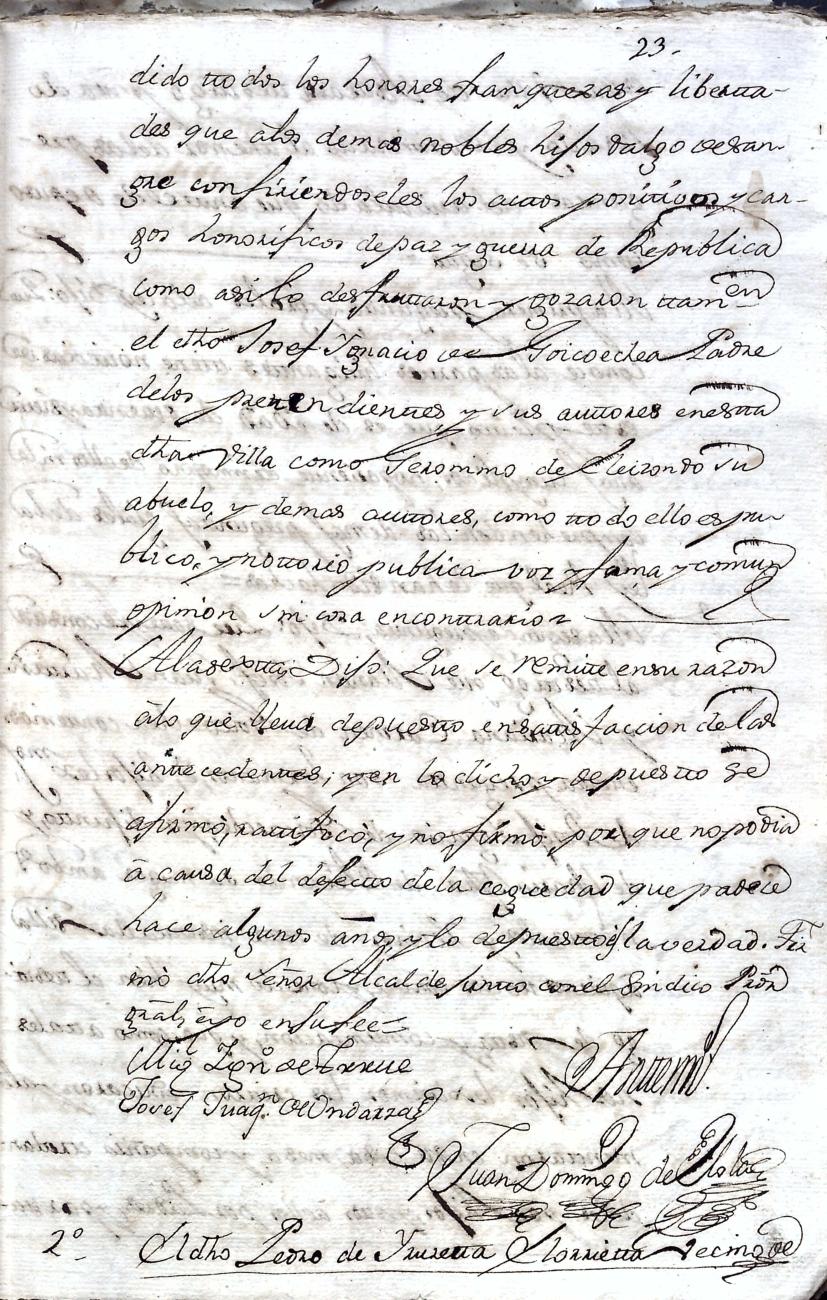 23.
dido ttodos los honores franquezas y libertta-
des que âlos demas nobles hijosdalgo desan-
gre confiriendoseles los acttos positivos y car-
gos honorificos depaz yguerra de Republica
como asi lo desfruttaron y gozaron ttamen
el dho Josef Ygnacio de Goicoechea Padre
delos prettendienttes, y sus auttores enestta
dha villa como Geronimo de Eleizondo su
abuelo, y demas auttores, como ttodo ello es pu-
blico, ynottorio publica voz y fama, y comun
opinion sin cosa encontrario
Alasextta; Dijo: Que se remitte ensu razon
âlo que lleva depuestto ensattisfaccion de las
anttecedenttes; yen lo dicho y depuestto se
afirmò, rattificò, y no firmò por que nopodia
â causa del defectto dela ceguedad que padece
hace algunos años, ylo depuestto es la verdad. Fir
mò dho Señor Alcalde juntto conel Sindico Pror
gral, èyo enfee=
Mig Ygn.o de Yrrue
Anttemi.
Josef Juaq.n de Ondarza
Juan Domingo de
2.o El dho Pedro de Yruretta Elorrietta Vecino de